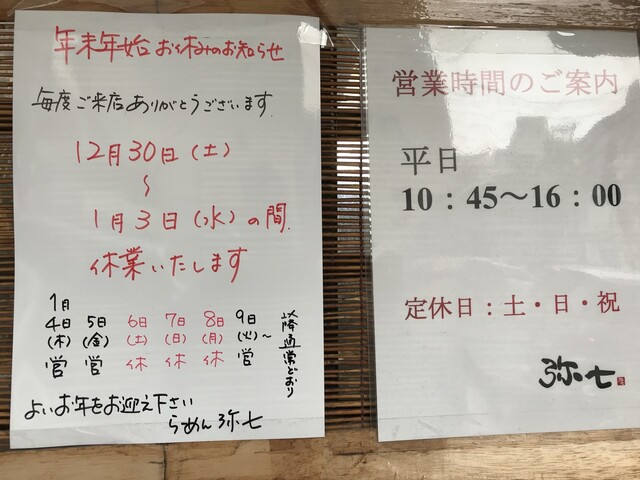 年末年始 お休みのお知らせ
毎度ご来店ありがとうございます
12月30日(土)
〜
1月3日(水)の間
休業いたします
1月
4日 5日 6日 7日 8日 9日〜
(木) (金) (土) (日) (月) (火)
営 営 休 休 休 営
以降通常どおり
よいお年をお迎え下さい
らーめん 弥七
営業時間のご案内
平日
10:45〜16:00
定休日:土・日・祝
弥七